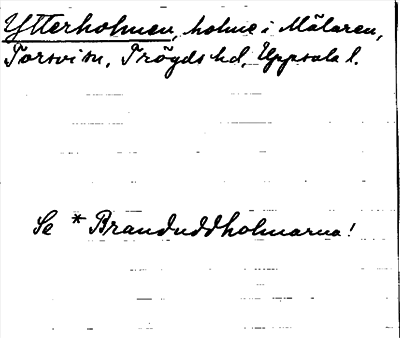 Ytterholmen, holme i Mälaren,
Torsvi sn, Trögds hd, Uppsala l.
Se *Branduddholmarna!